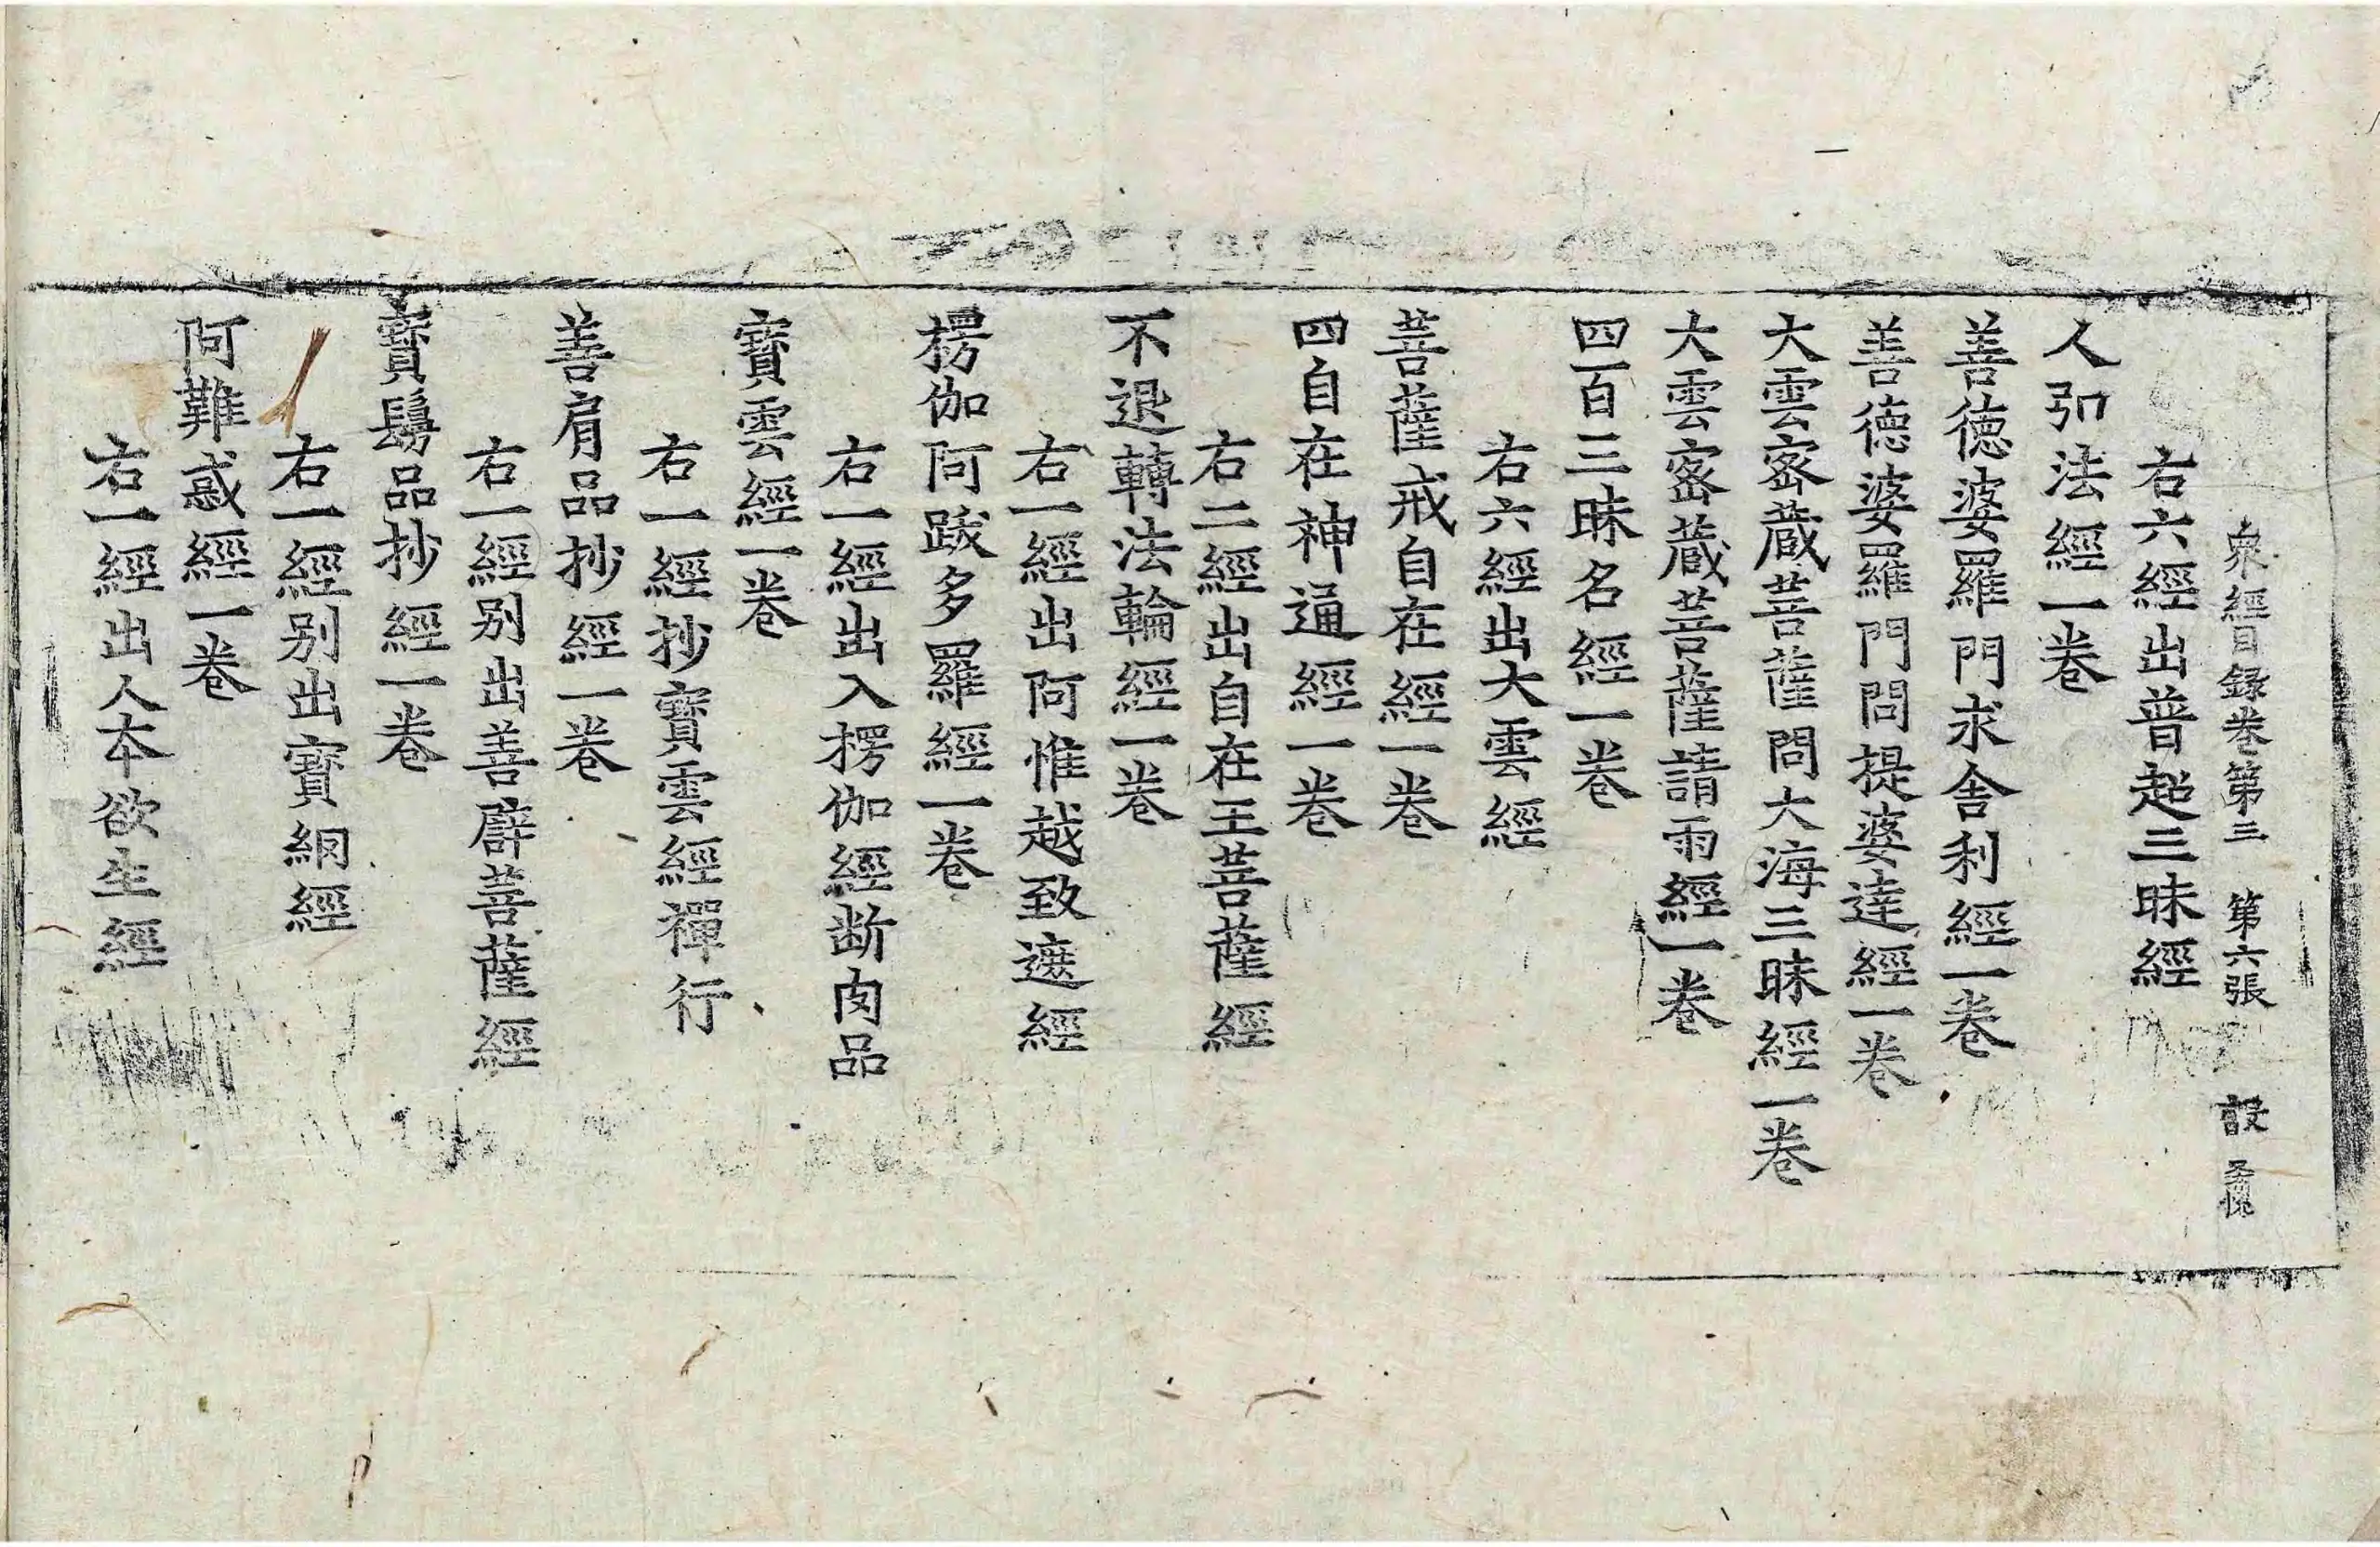 衆經目録卷第三　第六張　設
右六經出普超三昧經
人弘法經一卷
善徳婆羅門求舎利經一卷
善徳婆羅門問提婆達經一卷
大雲密蔵菩薩問大海三昧經一卷
大雲密蔵菩薩請雨經一卷
四百三昧名經一卷
右六經出大雲經
菩薩戒自在經一卷
四自在神通經一卷
右二經出自在王菩薩經
不退轉法輪經一卷
右一經出阿惟越致遮經
楞伽阿跋多羅經一卷
右一經出入楞伽經断肉品
寶雲經一卷
右一經抄寶雲經禪行
善肩品抄經一卷
右一經别出善臂菩薩經
寶鬘品抄經一卷
右一經别出寶網經
阿難惑經一卷
右一經出人本欲生經